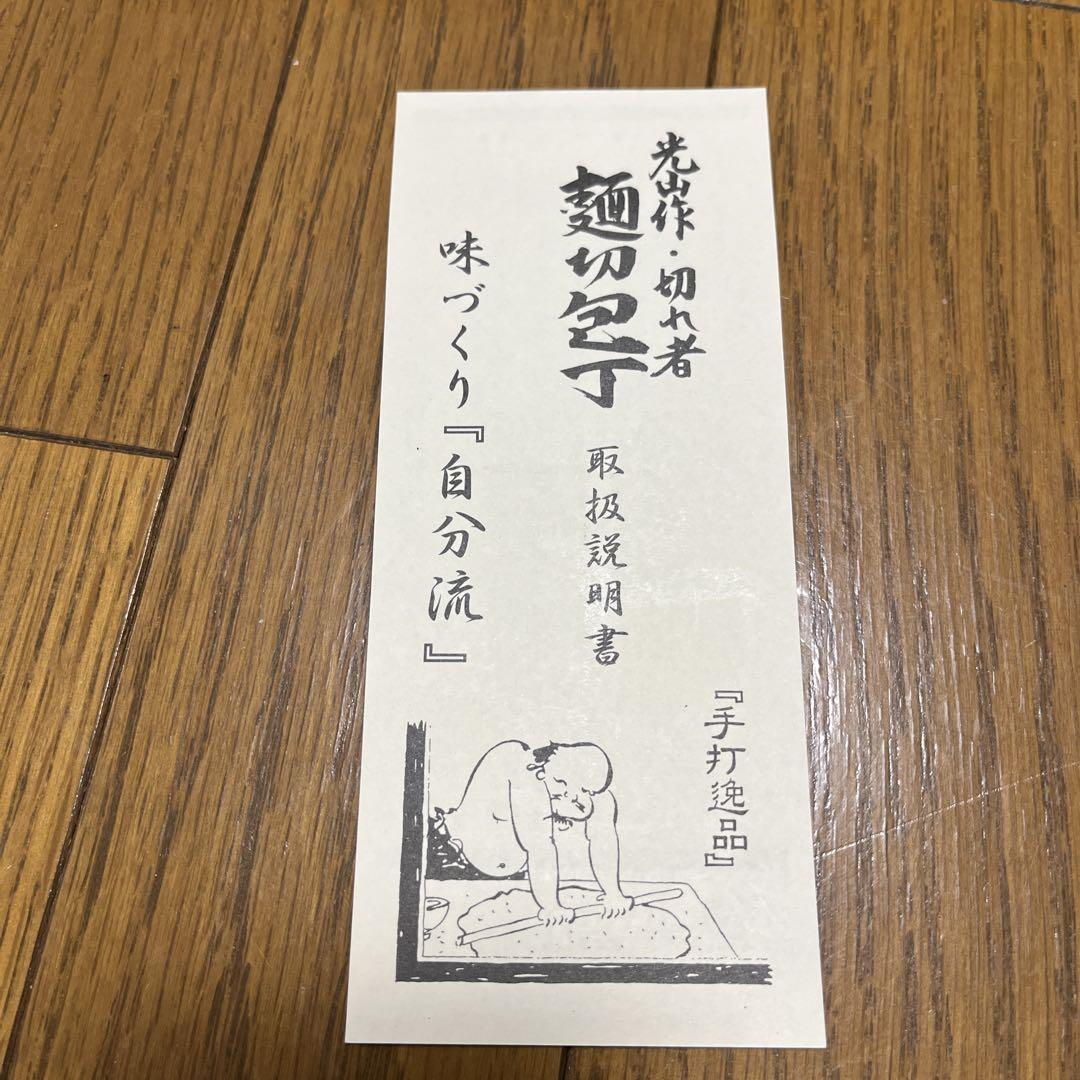 光山作・切れ者
麺切包丁
取扱説明書
味づくり『自分流』
『手打逸品』